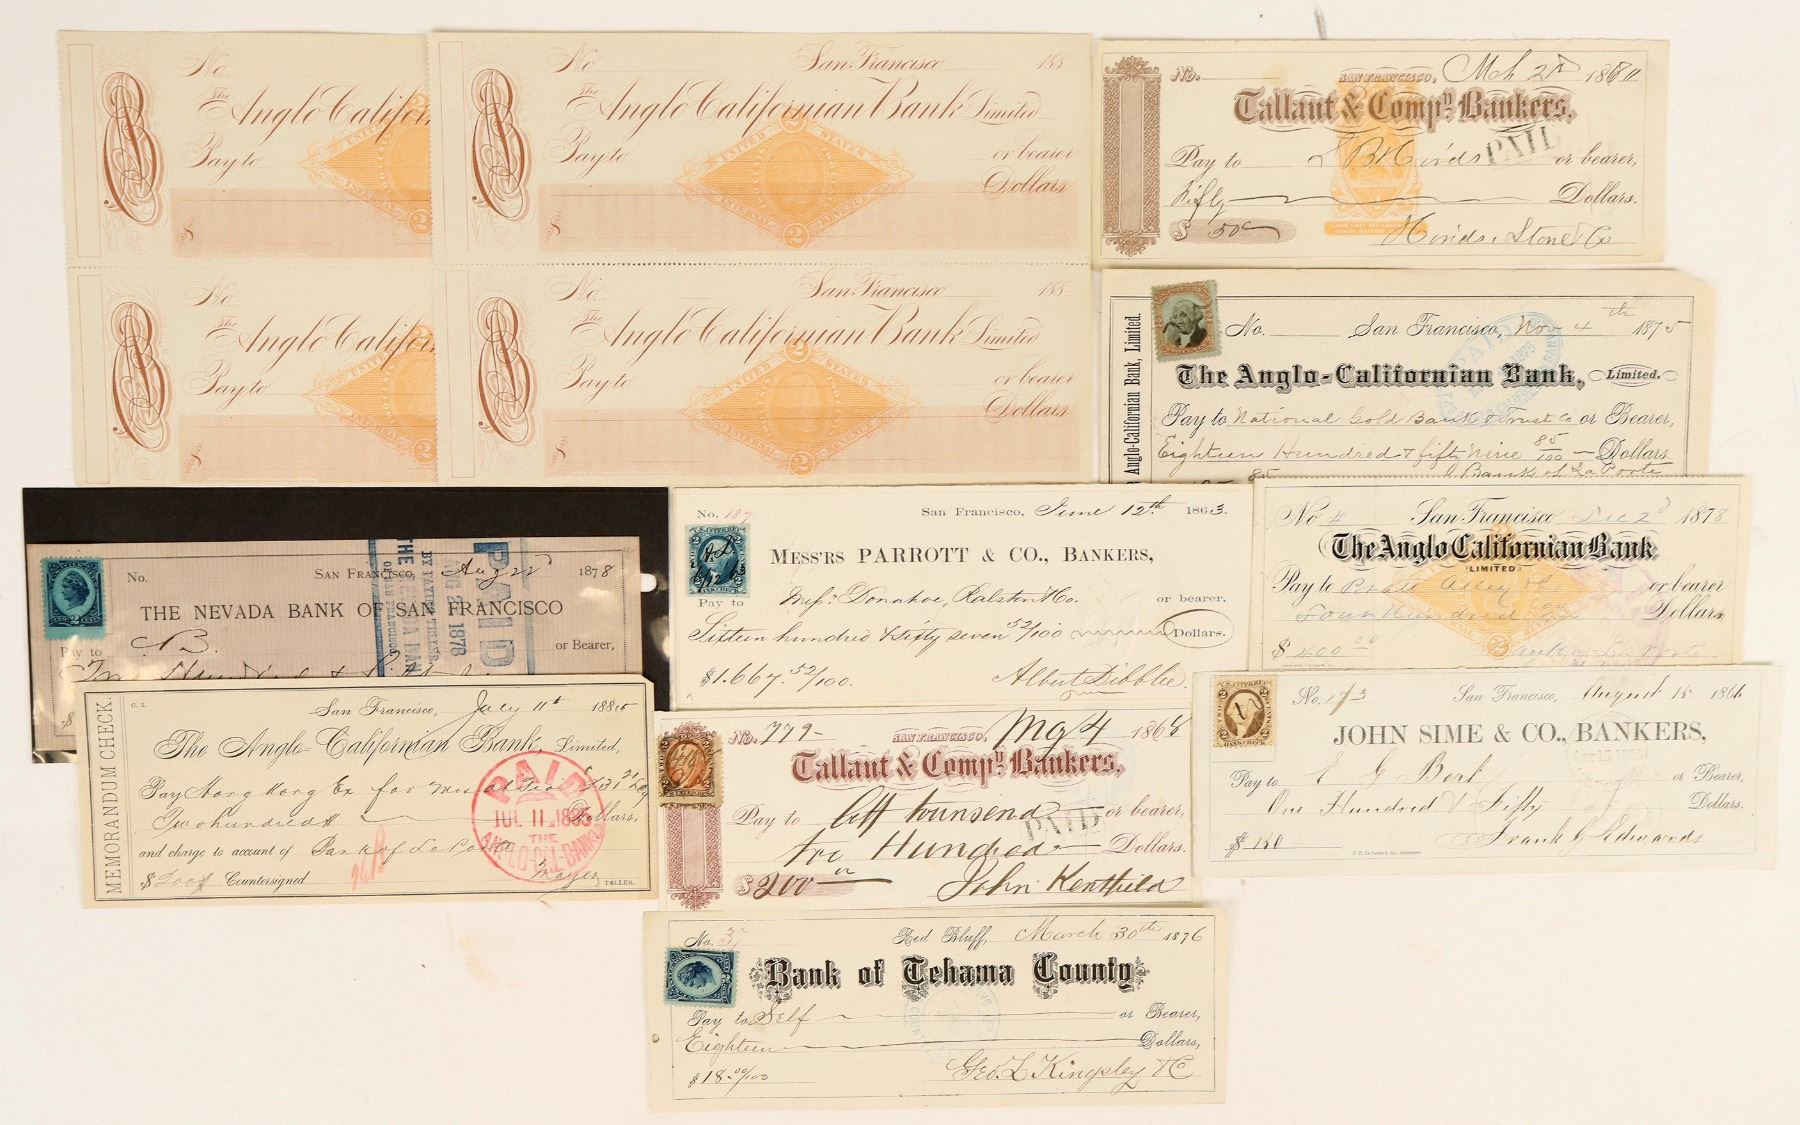 No.
The Anglo Califor
Pay to
$
No.
The Anglo Califor
Pay to
$
No. San Francisco 188
The Anglo Californian Bank Limited
Pay to or bearer
Dollars
$
UNITED STATES
INTERNAL REVENUE
2
2
No. San Francisco 188
The Anglo Californian Bank Limited
Pay to or bearer
Dollars
$
UNITED STATES
INTERNAL REVENUE
2
2
No. SAN FRANCISCO, Mch 1880
Tallant & Compy. Bankers,
PAID
Pay to Hinds or bearer,
Fifty Dollars.
$ 50
Hinds, Stone & Co
Anglo-Californian Bank, Limited.
No. San Francisco, Nov 4th 1875
The Anglo-Californian Bank, Limited.
PAID
Pay to National Gold Bank & Trust Co or Bearer,
Eighteen Hundred & fifty Nine 85/100 Dollars.
Bank of La Porte
No. San Francisco, Aug 22 1878
THE NEVADA BANK OF SAN FRANCISCO
Pay to NB. or Bearer,
PAID
AUG 22 1878
$
No. 187 San Francisco, June 12th 1863.
Mess'rs PARROTT & CO., Bankers,
Pay to Messr: Donohoe, Ralston & Co. or bearer,
Sixteen hundred & Sixty seven 52/100 Dollars.
$1.667.52/100. Albert Dibblee.
No # San Francisco Dec 2d 1878
The Anglo Californian Bank
(LIMITED)
Pay to or bearer
Four Hundred Dollars
$400 00 Bank of La Porte
MEMORANDUM CHECK.
San Francisco, July 11th 1885
The Anglo-Californian Bank, Limited,
Pay Hong Kong Ex for
Two hundred Dollars,
and charge to account of Bank of La Porte
$ 200 Countersigned TELLER.
PAID
JUL 11 188
THE
ANGLO-CAL-BANK
No. 779 SAN FRANCISCO, 4 1868
Tallant & Compy. Bankers,
Pay to Townsend or bearer,
PAID
Two Hundred Dollars.
$200 John Kentfield
No. 173 San Francisco, August 15 1866
JOHN SIME & CO., BANKERS,
Pay to or Bearer,
One Hundred & Fifty Dollars.
$ 150 Frank G Edwards
No. 37 Red Bluff, March 30th 1876
Bank of Tehama County
Pay to Self or Bearer,
Eighteen Dollars,
$18.00/100 Geo. L Kingsley & C